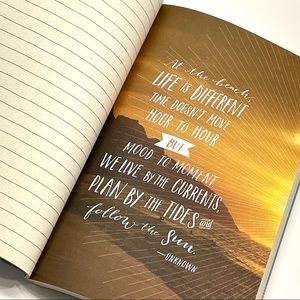 At the beach,
LIFE IS DIFFERENT.
TIME DOESN'T MOVE
HOUR TO HOUR
BUT
MOOD TO MOMENT.
WE LIVE BY THE CURRENTS,
PLAN BY THE TIDES and
follow the Sun.
—UNKNOWN